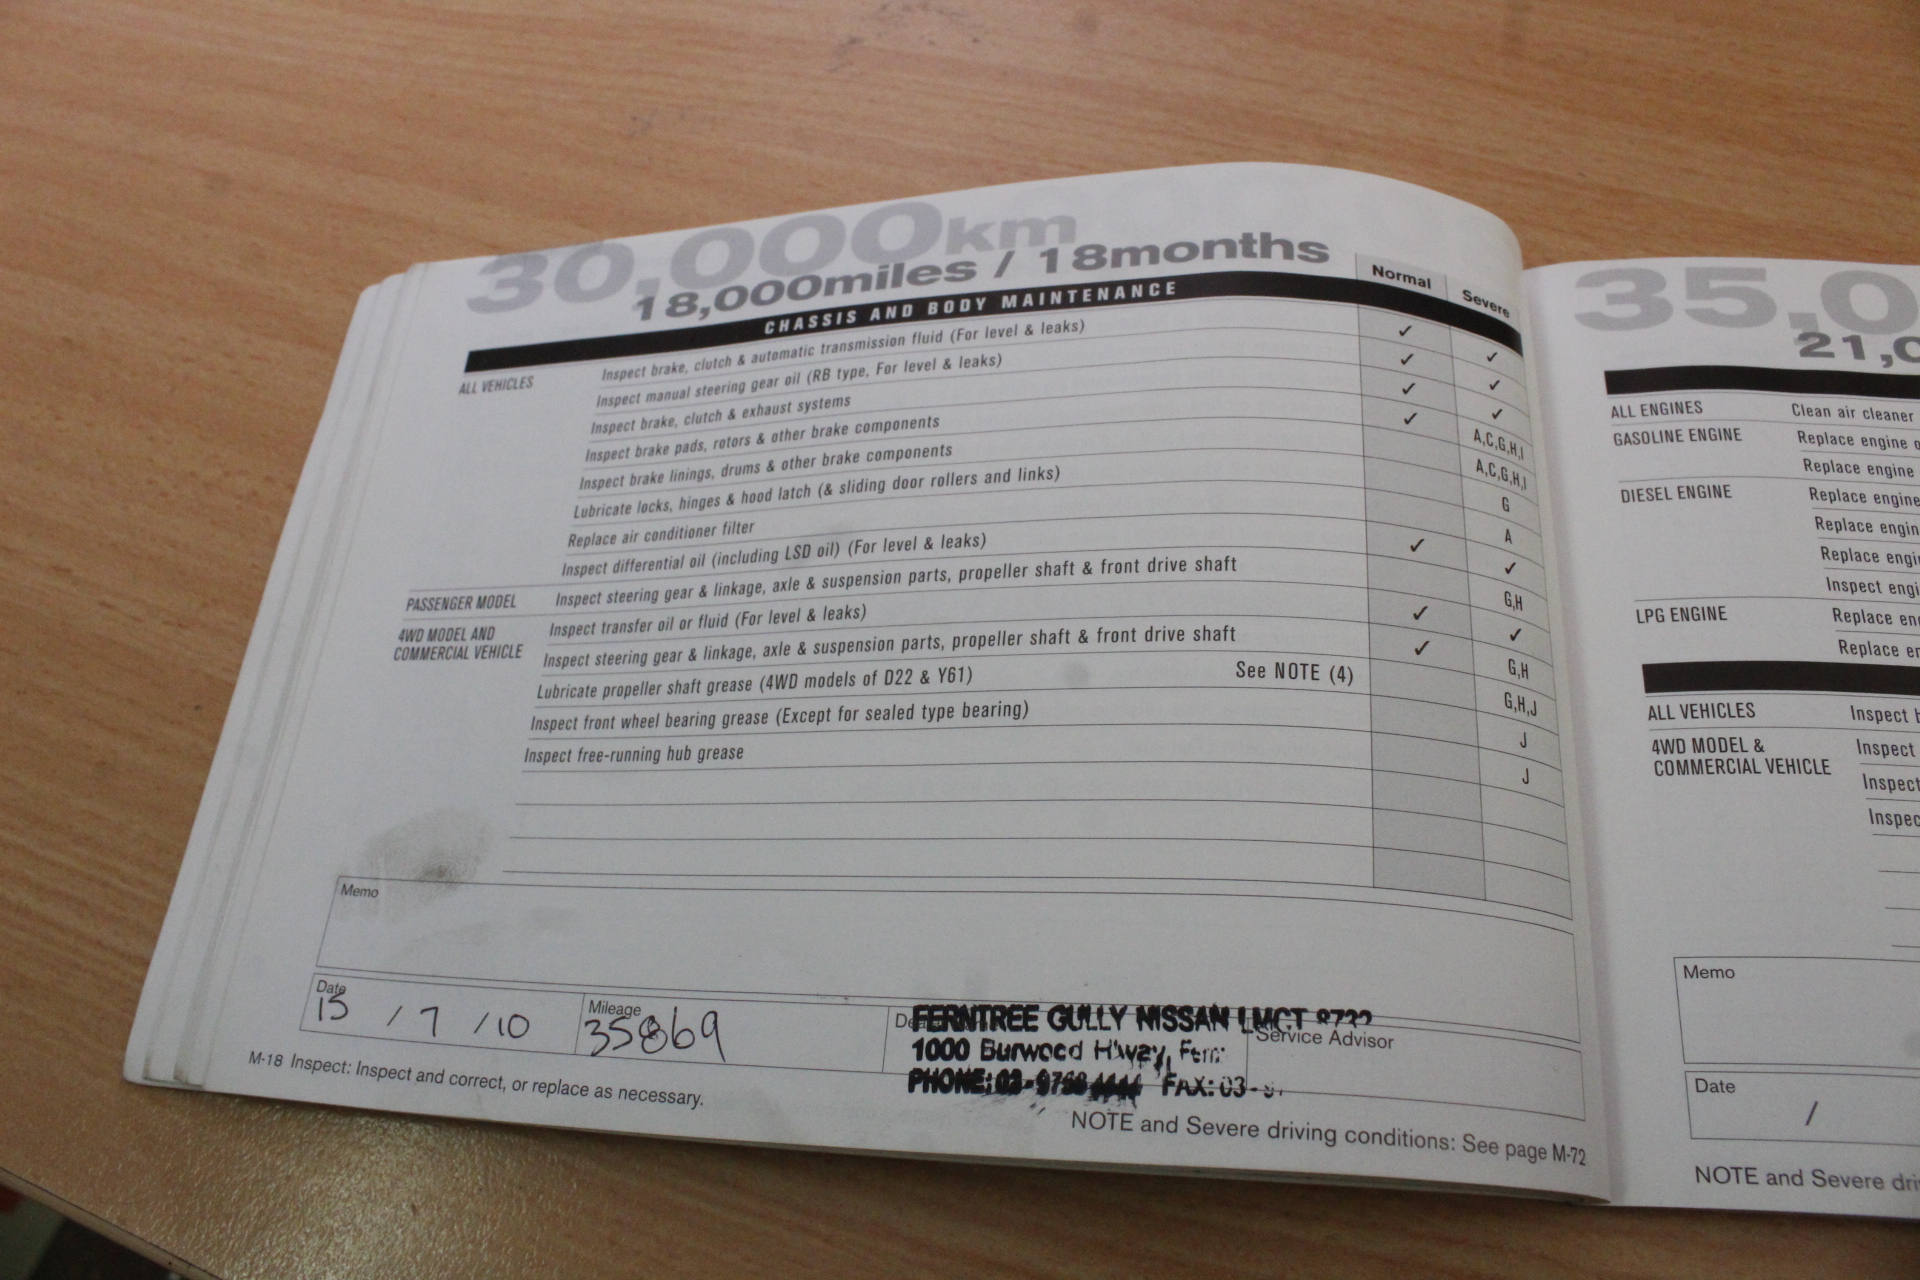 30,000km
18,000miles / 18months
Normal Severe
CHASSIS AND BODY MAINTENANCE
ALL VEHICLES Inspect brake, clutch & automatic transmission fluid (For level & leaks) ✓ ✓
Inspect manual steering gear oil (RB type, For level & leaks) ✓ ✓
Inspect brake, clutch & exhaust systems ✓ ✓
Inspect brake pads, rotors & other brake components ✓ A,C,G,H,I
Inspect brake linings, drums & other brake components A,C,G,H,I
Lubricate locks, hinges & hood latch (& sliding door rollers and links) G
Replace air conditioner filter A
Inspect differential oil (including LSD oil) (For level & leaks) ✓ ✓
PASSENGER MODEL Inspect steering gear & linkage, axle & suspension parts, propeller shaft & front drive shaft G,H
4WD MODEL AND
COMMERCIAL VEHICLE
Inspect transfer oil or fluid (For level & leaks) ✓ ✓
Inspect steering gear & linkage, axle & suspension parts, propeller shaft & front drive shaft ✓ G,H
Lubricate propeller shaft grease (4WD models of D22 & Y61) See NOTE (4) G,H,J
Inspect front wheel bearing grease (Except for sealed type bearing) J
Inspect free-running hub grease J
Memo
Date
15 / 7 / 10
Mileage
35869
FERNTREE GULLY NISSAN LMCT
1000 Burwood H'way,
PHONE: 03 - FAX: 03 -
Service Advisor
M-18 Inspect: Inspect and correct, or replace as necessary.
NOTE and Severe driving conditions: See page M-72
35,0
21,0
ALL ENGINES Clean air cleaner
GASOLINE ENGINE Replace engine o
Replace engine
DIESEL ENGINE Replace engine
Replace engin
Replace engi
Inspect engi
LPG ENGINE Replace en
Replace er
ALL VEHICLES Inspect b
4WD MODEL &
COMMERCIAL VEHICLE
Inspect
Inspect
Inspec
Memo
Date
/
NOTE and Severe dri